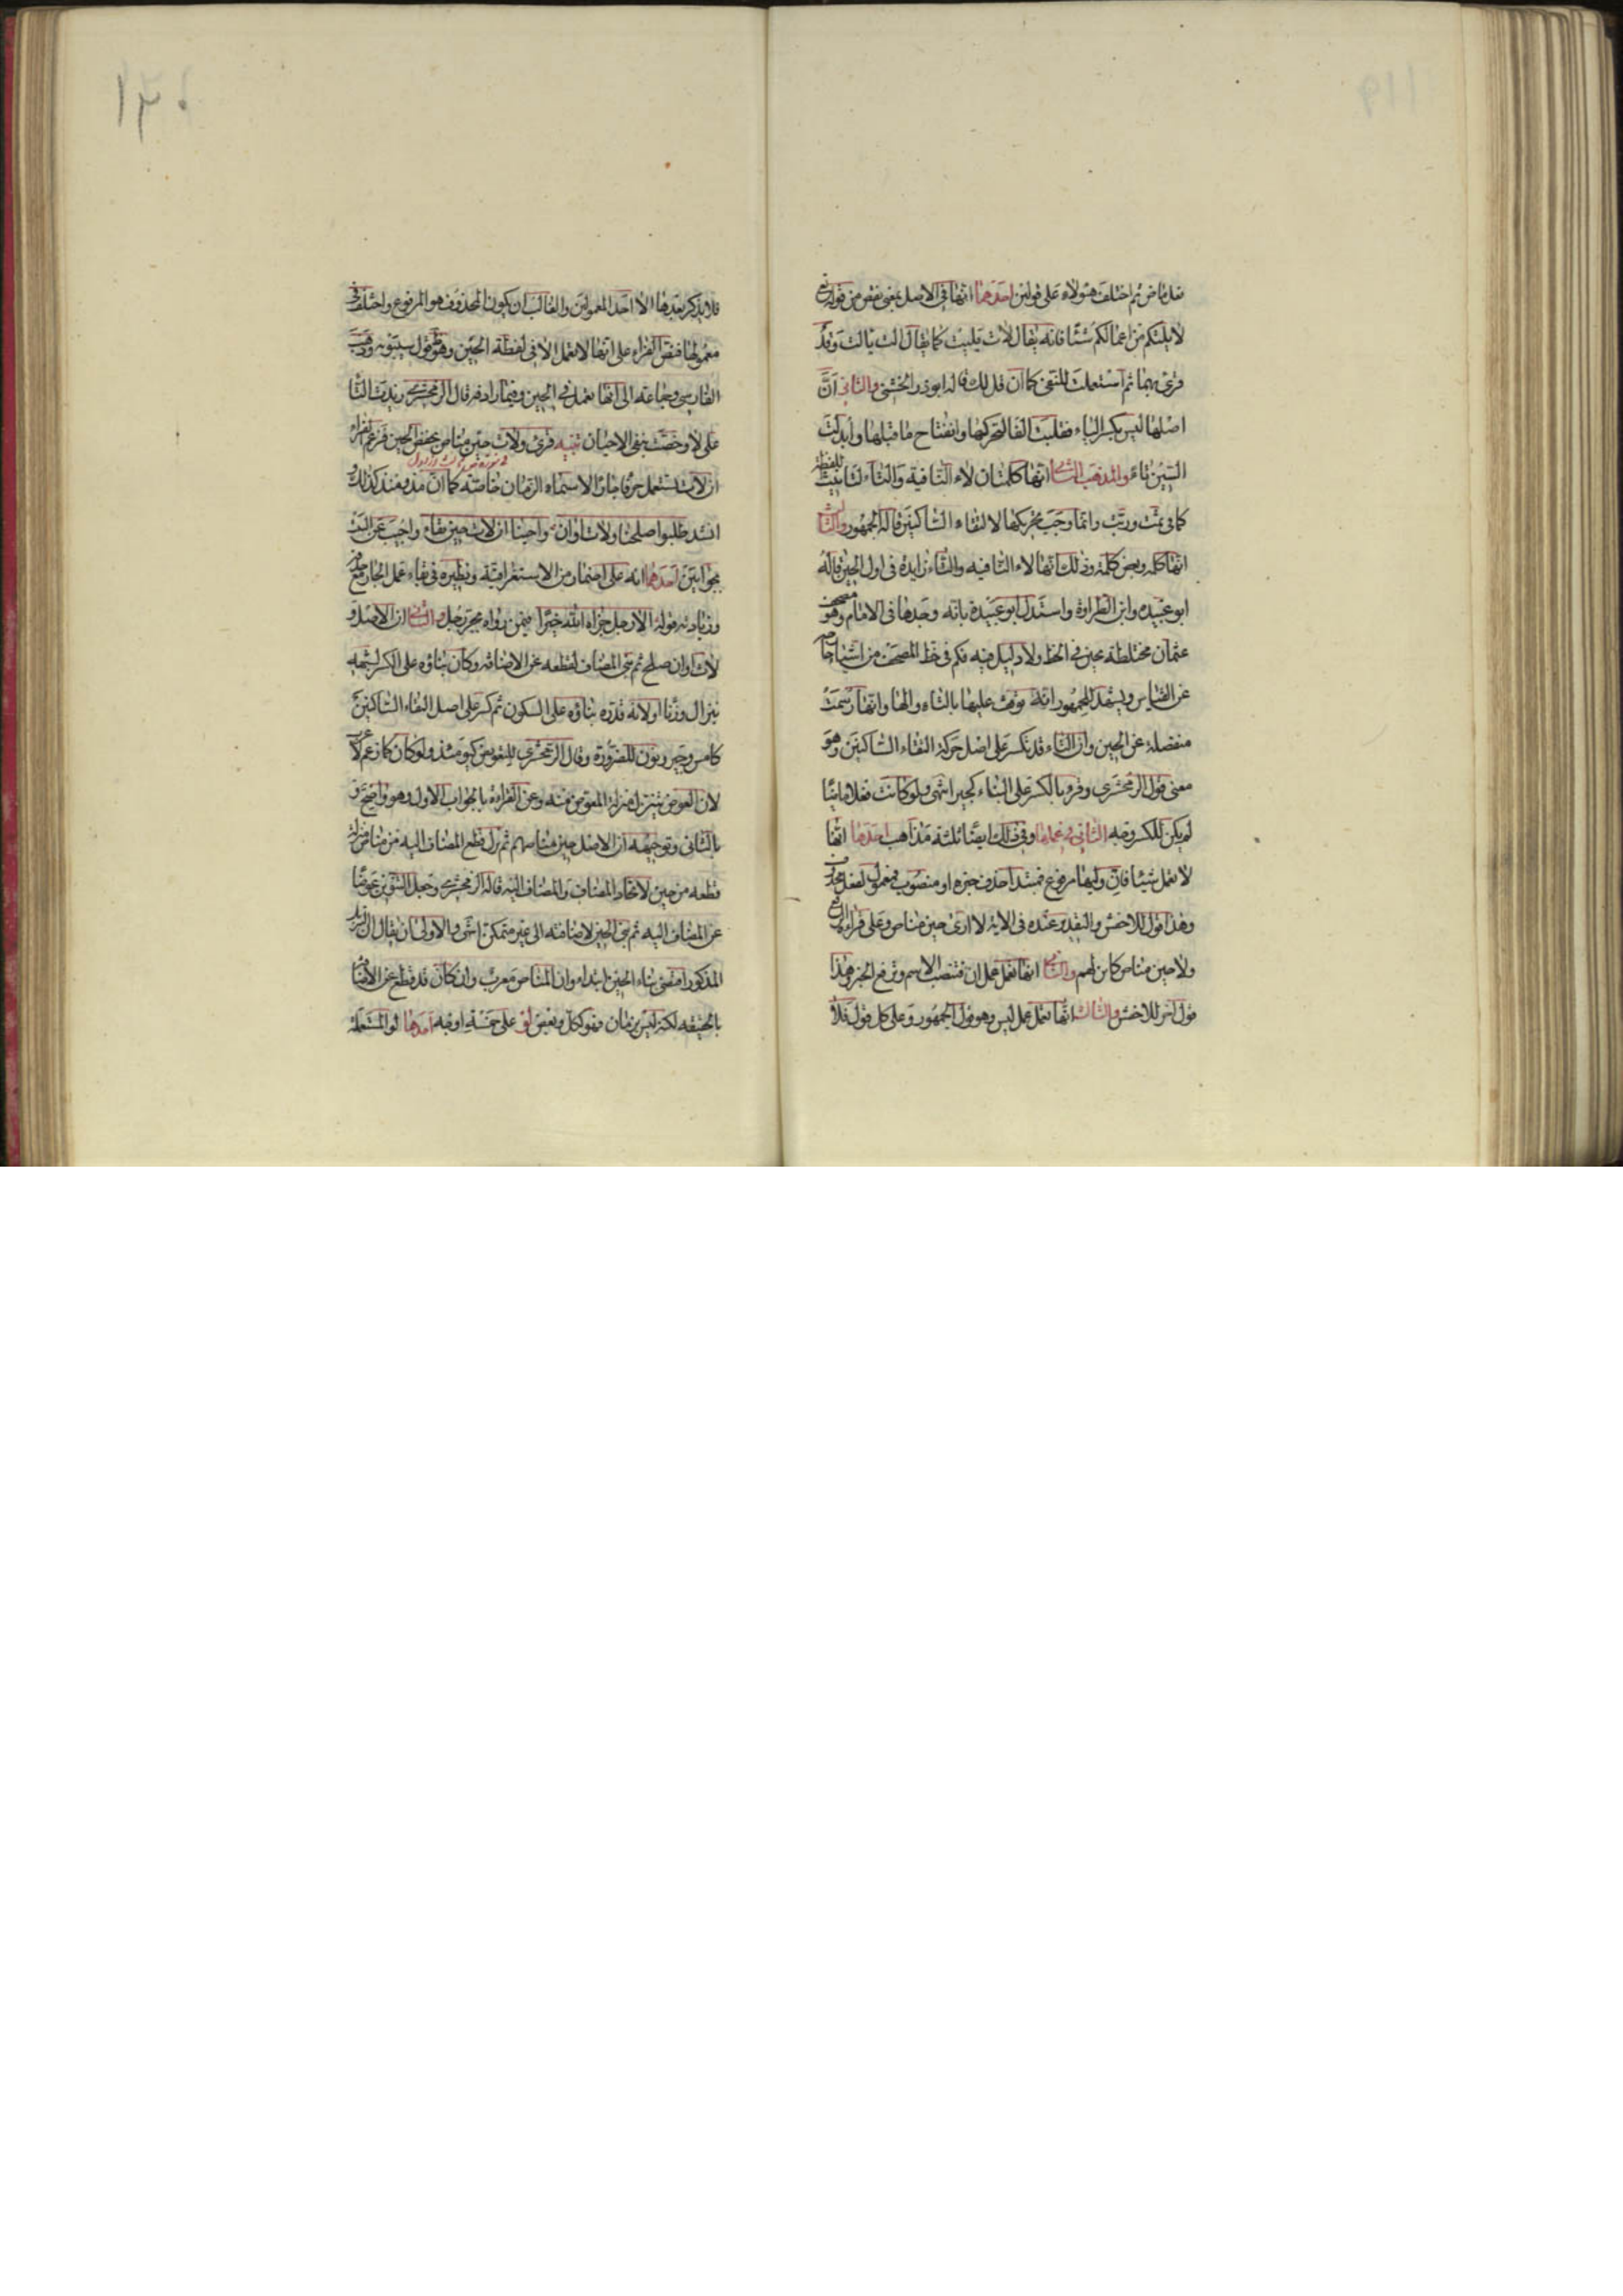 فعل ماض ثم اختلف هؤلاء على قولين احدهما انها فى الاصل بمعنى نقص من قوله تع
لا يلتكم من اعمالكم شيئا فانه يقال لات يليت كما يقال الت يالت وقد
قرئ بهما ثم استعملت للنفى كما ان قل كذلك قاله ابو ذر الخشنى والثانى ان
اصلها ليس بكسر الياء فقلبت الفا لتحركها وانفتاح ما قبلها وابدلت
السين تاء والمذهب الثانى انها كلمتان لاء النافية والتاء لتانيث اللفظة
كما فى ثمت وربت وانما وجب تحريكها لالتقاء الساكنين قاله الجمهور والثالث
انها كلمة وبعض كلمة وذلك انها لاء النافيه والتاء زايدة فى اول الحين قاله
ابو عبيده وابن الطراوة واستدل ابو عبيدة بانه وجدها فى الامام وهو مصحف
عثمان مختلطة بحين فى الخط ولا دليل فيه فكم فى خط المصحف من اشياء خارجة
عن القياس ويشهد للجمهور انه يوقف عليها بالتاء والها وانها رسمت
منفصلة عن الحين وان التاء قد تكسر على اصل حركة التقاء الساكنين وهو
معنى قول الزمخشرى وقرئ بالكسر على البناء كجير انتهى ولو كانت فعلا ماضيا
لم يكن للكسر وجه الثانى فى عملها وفى ذلك ايضا ثلثة مذاهب احدها انها
لا تعمل شيئا فان وليها مرفوع فمبتدا حذف خبره او منصوب فمعمول لفعل محذوف
وهذا قول للاخفش والتقدير عنده فى الاية لا ارى حين مناص وعلى قراءة الرفع
ولا حين مناص كاين لهم والثانى انها تعمل عمل ان فتنصب الاسم وترفع الخبر وهذا
قول اخر للاخفش والثالث انها تعمل عمل ليس وهو قول الجمهور وعلى كل قول فلا
فلا يذكر بعدها الا احد المعمولين والغالب ان يكون المحذوف هو المرفوع واختلف فى
معمولها فنص الفراء على انها لا تعمل الا فى لفظة الحين وهو ظ قول سيبويه وذهب
الفارسى وجماعة الى انها تعمل فى الحين وفيما رادفه قال الزمخشرى زيدت التا
على لا وخصت بنفى الاحيان تنبيه قرئ ولات حين مناص بخفض الحين فزعم الفراء
ان لات تستعمل حرفا جارا لاسماء الزمان خاصة كما ان مذ ومنذ كذلك و
انشد طلبوا صلحنا ولات اوان واجبنا ان لات حين بقاء واجيب عن البيت
بجوابين احدهما انه على اضمار من الاستغراقية ونظيره فى بقاء عمل الجار مع حذفه
وزيادته قوله الا رجل جزاه الله خيرا فيمن رواه بجر رجل والثانى ان الاصل و
لات اوان صلح ثم بنى المضاف لقطعه عن الاضافة وكان بناؤه على الكسر لشبهه
بنزال وزنا او لانه قدره بناؤه على السكون ثم كسر على اصل التقاء الساكنين
كامس وجير ونون للضرورة وقال الزمخشرى للتعويض كيومئذ ولو كان كما زعم لاعرب
لان العوض ينزل منزلة المعوض منه وعن القراءة بالجواب الاول وهو واضح و
بالثانى وتوجيهه ان الاصل حين مناصهم ثم نزل قطع المضاف اليه من مناص منزلة
قطعه من حين لاتحاد المضاف والمضاف اليه قاله الزمخشرى وجعل التنوين عوضا
عن المضاف اليه ثم بنى الحين لاضافته الى غير متمكن انتهى والاولى ان يقال ان التنزيل
المذكور اقتضى بناء الحين ابتداء وان المناص معرب وان كان قد قطع عن الاضافة
بالحقيقه لكنه ليس بزمان فهو ككل وبعض لو على خمسة اوجه احدها لو المستعملة